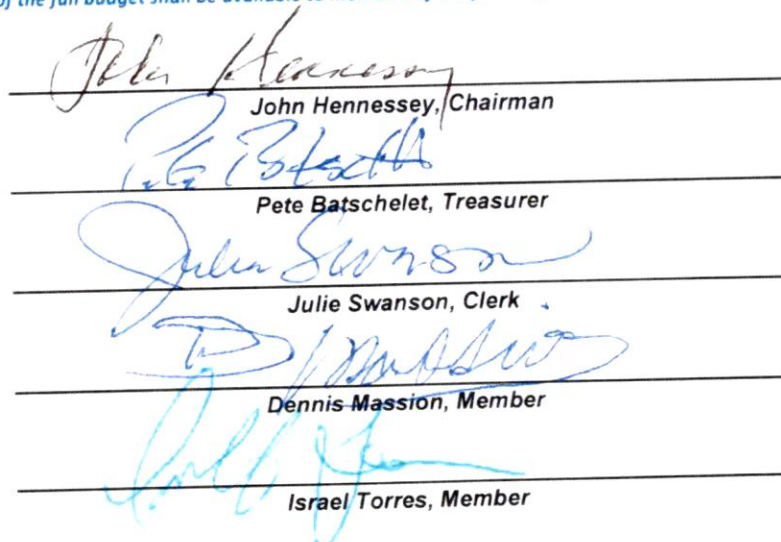 of the full budget shall be available to
John Hennessy
John Hennessey, Chairman
Pete Batschelet, Treasurer
Julie Swanson
Julie Swanson, Clerk
Dennis Massion, Member
Israel Torres, Member